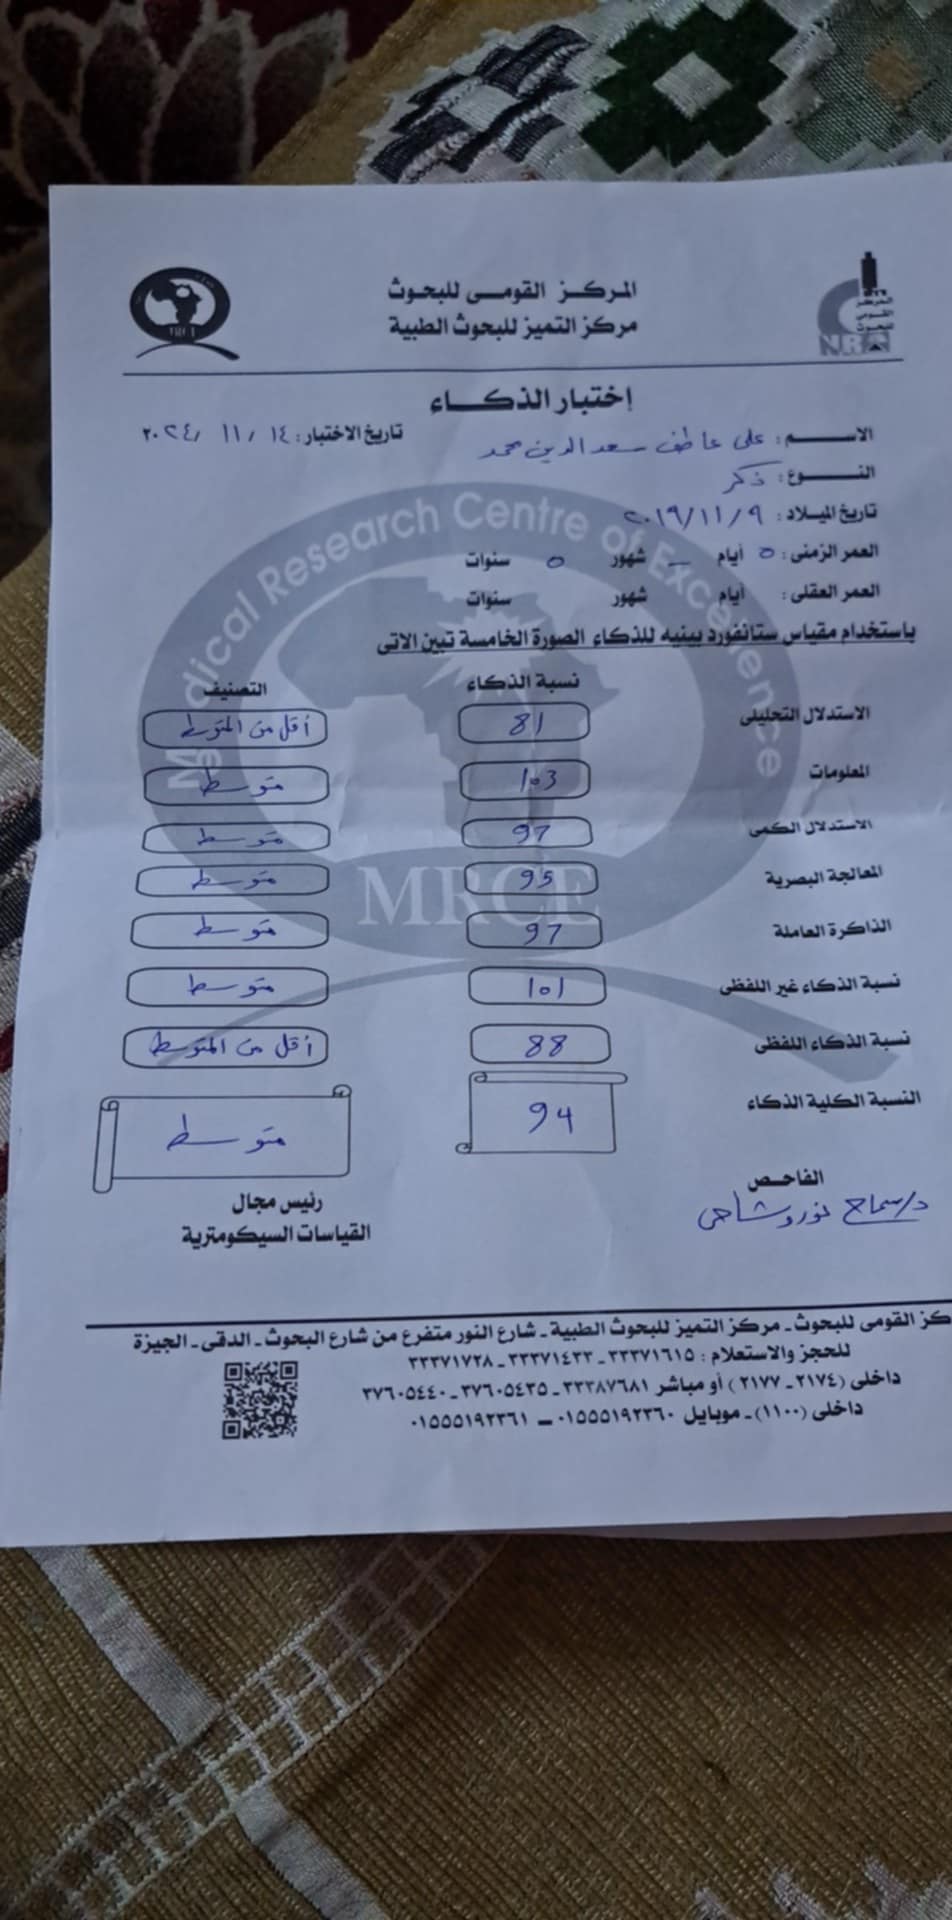 المركز القومى للبحوث
مركز التميز للبحوث الطبية
المركز القومى للبحوث
NRC
إختبار الذكاء
الاسم: على عاطف سعد الدين محمد تاريخ الاختبار: ١٤ / ١١ / ٢٠٢٤
النوع: ذكر
تاريخ الميلاد: ٩ / ١١ / ٢٠١٩
العمر الزمنى: ٥ أيام _ شهور ٥ سنوات
العمر العقلى: أيام شهور سنوات
باستخدام مقياس ستانفورد بينيه للذكاء الصورة الخامسة تبين الاتى
نسبة الذكاء التصنيف
الاستدلال التحليلى 81 أقل من المتوسط
المعلومات 103 متوسط
الاستدلال الكمى 97 متوسط
المعالجة البصرية 95 متوسط
الذاكرة العاملة 97 متوسط
نسبة الذكاء غير اللفظى 101 متوسط
نسبة الذكاء اللفظى 88 أقل من المتوسط
النسبة الكلية الذكاء 94 متوسط
Medical Research Centre of Excellence
MRCE
الفاحص رئيس مجال
د/سماح القياسات السيكومترية
كز القومى للبحوث - مركز التميز للبحوث الطبية - شارع النور متفرع من شارع البحوث - الدقى - الجيزة
للحجز والاستعلام: ٣٣٣٧١٦١٥ - ٣٣٣٧١٤٣٣ - ٣٣٣٧١٧٢٨
داخلى (٢١٧٤ - ٢١٧٧) أو مباشر ٣٣٣٨٧٦٨١ - ٣٧٦٠٥٤٣٥ - ٣٧٦٠٥٤٤٠
داخلى (١١٠٠) - موبايل ٠١٥٥٥١٩٢٣٦٠ - ٠١٥٥٥١٩٢٣٦١